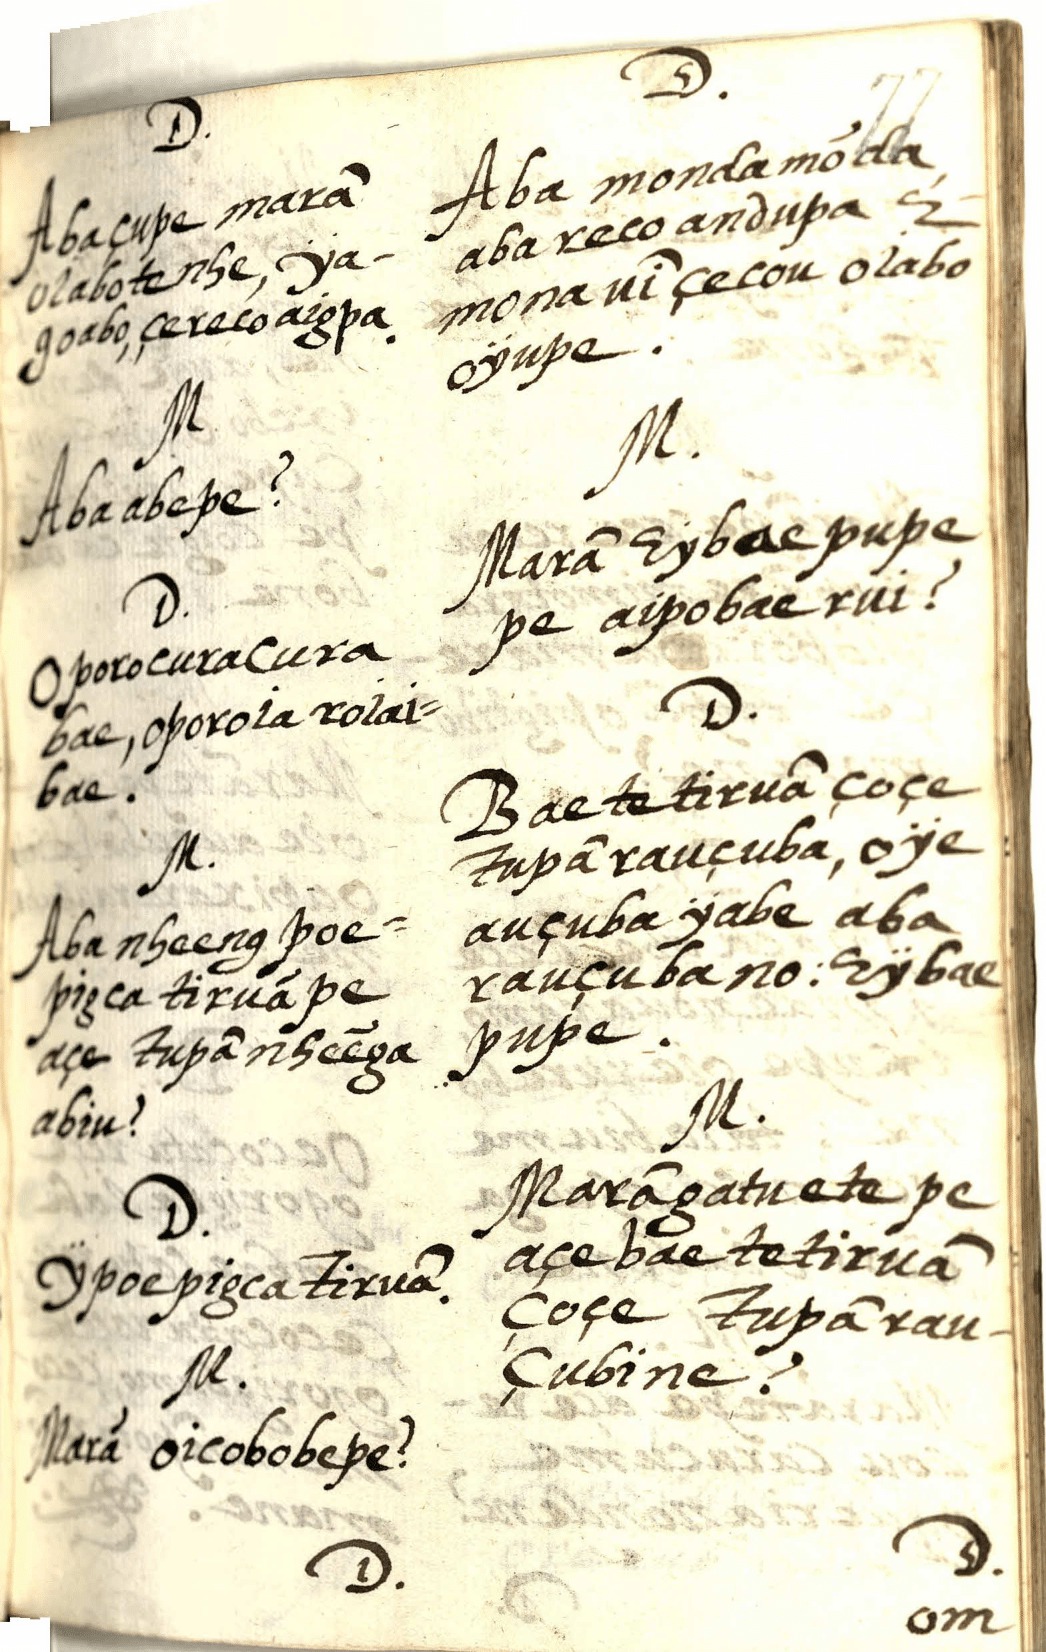 77
D.
Abaçupe marã
oiabotenhe, ÿya-
goabo, çerecoaigpa.
M
Aba abepe?
D.
Oporocuracura
bae, oporoia roiai=
bae.
M.
Aba nheeng poe=
pigca tiruã pe
açe tupã nheẽga
abiu?
D.
Ÿpoepigca tiruã.
M.
Marã oicobobepe?
D.
D.
Aba monda mõda,
aba reco andupa Eẽ
mona uĩ çecou oiabo
oÿupe.
M.
Marã Eybae pupe
pe aipobae rui?
D.
Bae te tiruã çoçe
tupã rauçuba, oÿe
auçuba ÿabe aba
rauçuba no: Eÿbae
pupe.
M.
Marãgatuete pe
açe bae te tiruã
çoçe tupã rau-
çubine?
D.
om